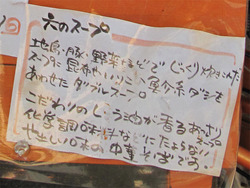 六のスープ
地鳥・豚・野菜などで じっくり炊きこんだ
スープに昆布やいりこ、魚介系ダシを
あわせたダブルスープ
こだわりのしょう油が香るあっさりスープ
化学調味料などにたよらない
やさしい味の中華そばです。